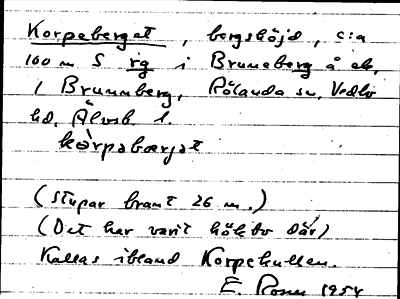 Korpeberget, bergshöjd, c:a
100 m S rg i Bruneberg å ek,
i Brunnberg, Rölanda sn, Vedbo
hd, Älvsb l.
kòrpabærjat
(Stupar brant 26 m.)
(Det har varit hökbo där)
Kallas ibland Korpekullen.
E. 1954